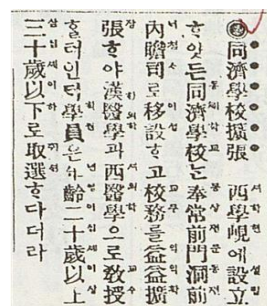 ◉同濟學校擴張 西學峴에設立
ᄒᆞ얏든同濟學校는奉常前門洞前
內瞻司로移設ᄒᆞ고校務를益益擴
張ᄒᆞ야漢醫學과西醫學으로敎授
ᄒᆞᆯ터인ᄃᆡ學員은年齡二十歲以上
三十歲以下로取選ᄒᆞᆫ다더라